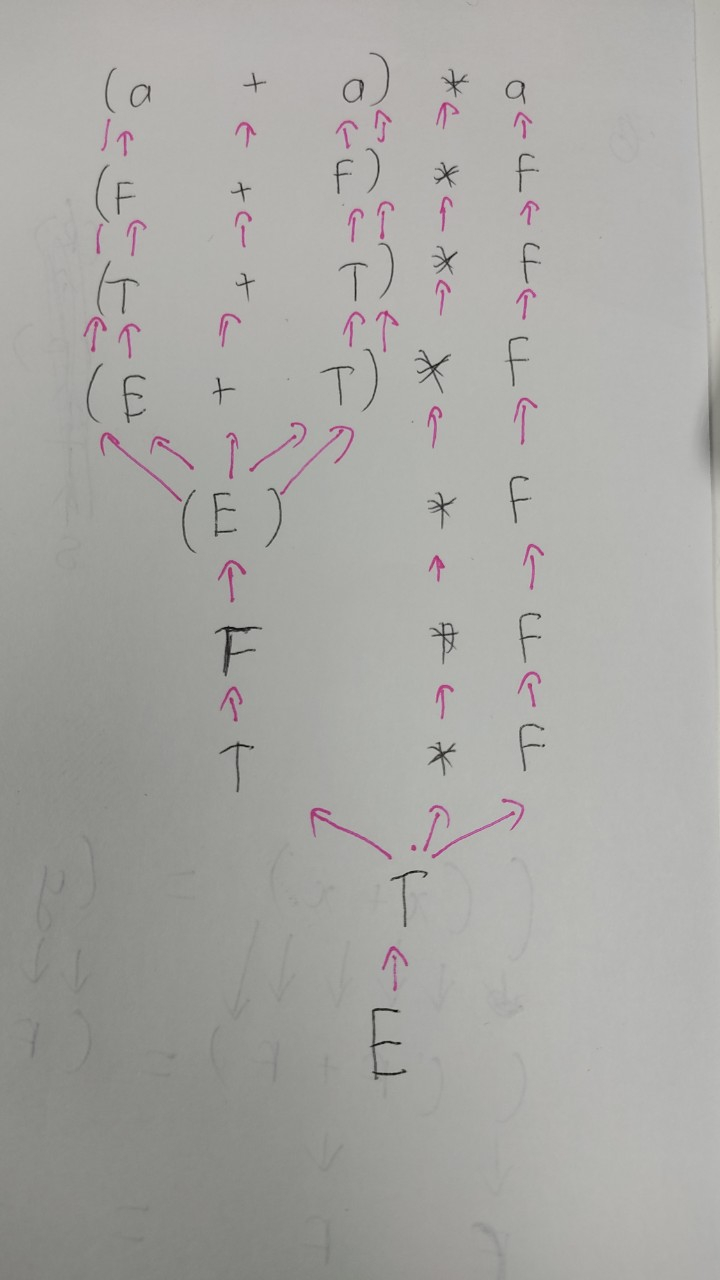 (a + a) * a
(F + F) * F
(T + T) * F
(E + T) * F
(E) * F
F * F
T * F
T
E